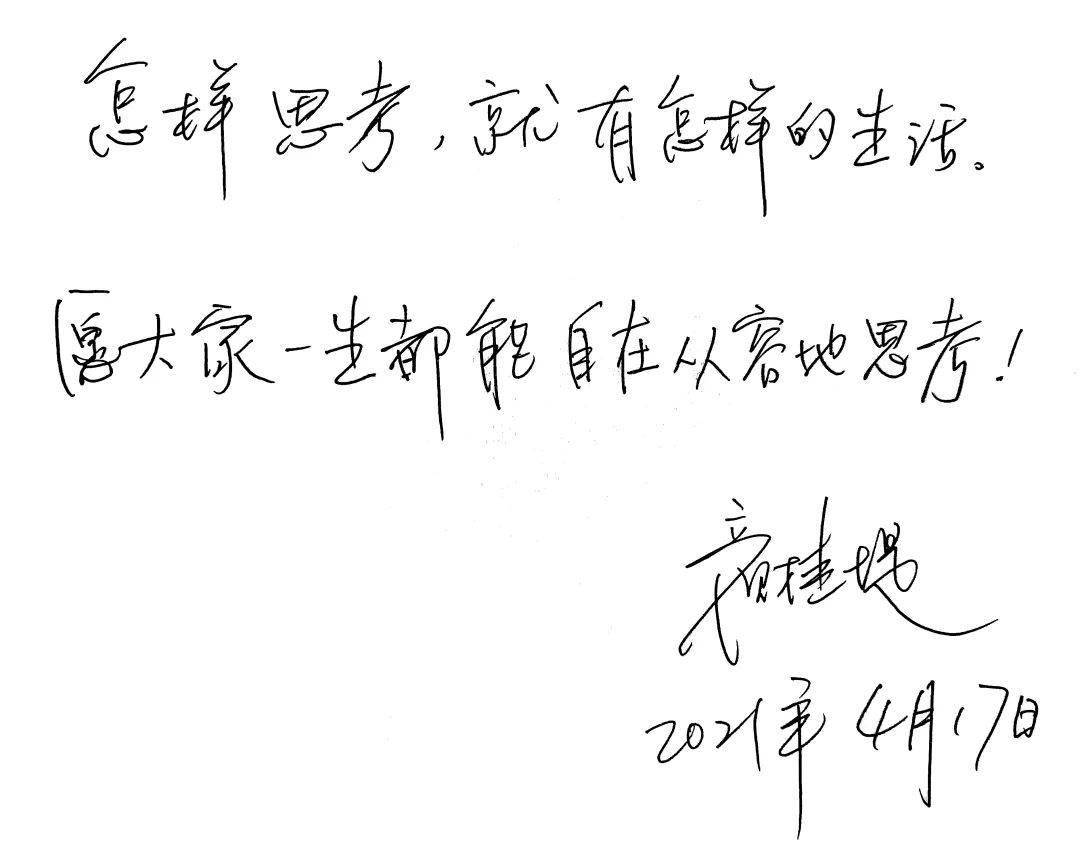 怎样思考，就有怎样的生活。
愿大家一生都能自在从容地思考！
桂堤
2021年4月17日